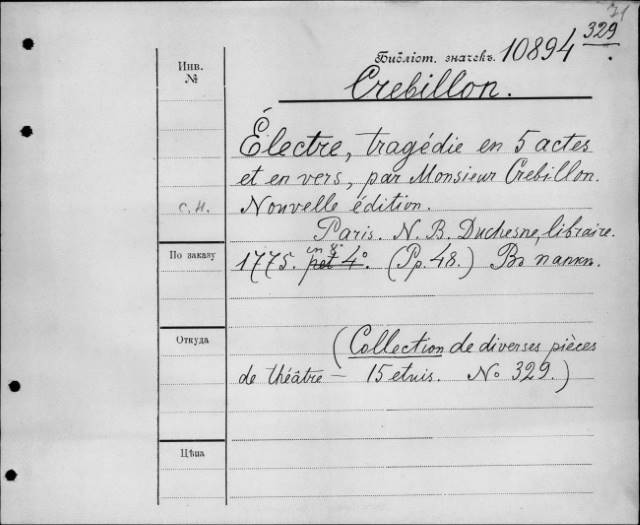 71
Инв. №
Библіот. значекъ. 10894 329.
Crebillon.
Électre, tragédie en 5 actes
et en vers, par Monsieur Crebillon.
с.н. Nouvelle édition.
Paris. N. B. Duchesne, libraire.
По заказу
in 8°
1775. pet 4°. (Pp. 48.) Въ папкѣ.
Откуда
(Collection de diverses pièces
de théâtre — 15 etuis. No 329.)
Цѣна